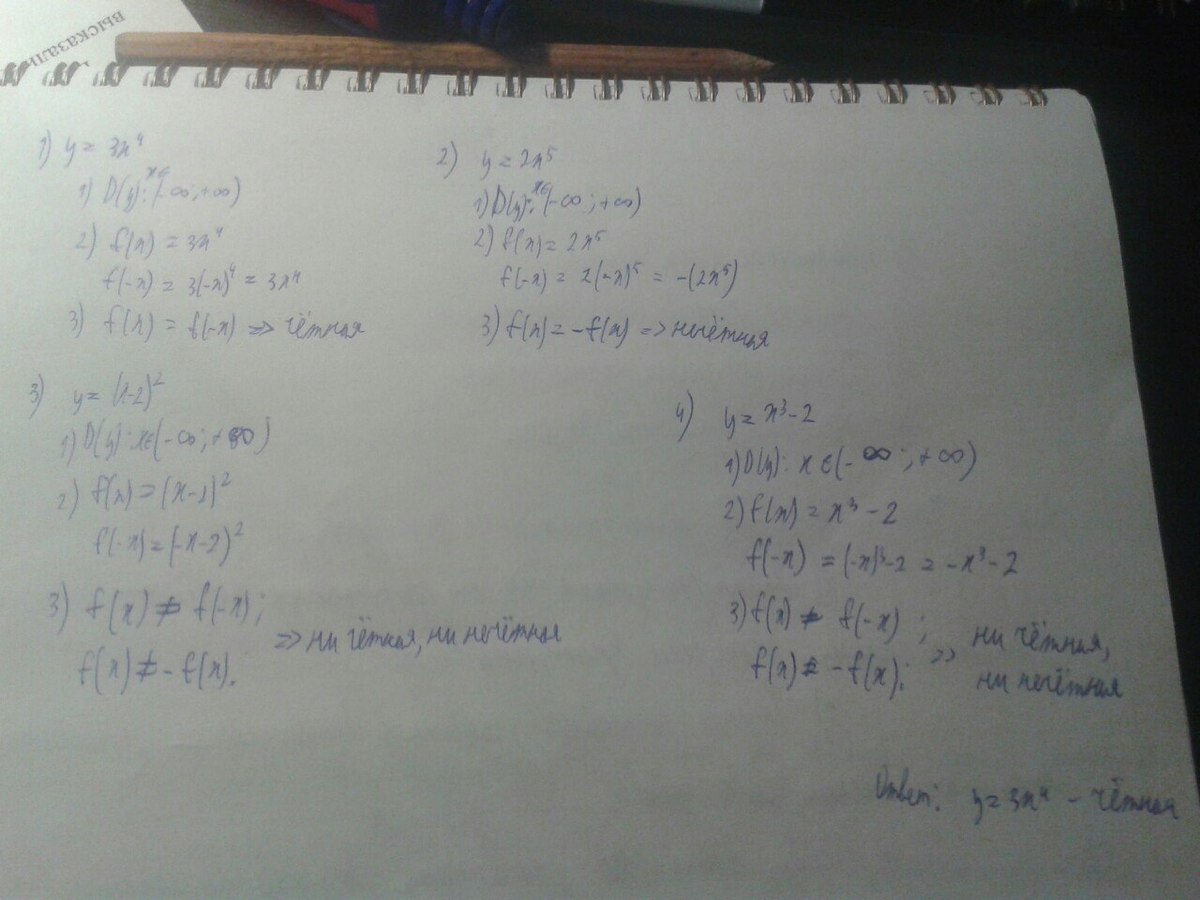 высказали
1) y = 3x⁴
1) D(y): x∈(-∞;+∞)
2) f(x) = 3x⁴
f(-x) = 3(-x)⁴ = 3x⁴
3) f(x) = f(-x) => чётная
2) y = 2x⁵
1) D(y): x∈(-∞;+∞)
2) f(x) = 2x⁵
f(-x) = 2(-x)⁵ = -(2x⁵)
3) f(x) = -f(x) => нечётная
3) y = (x-2)²
1) D(y): x∈(-∞;+∞)
2) f(x) = (x-2)²
f(-x) = (-x-2)²
3) f(x) ≠ f(-x);
=> ни чётная, ни нечётная
f(x) ≠ -f(x).
4) y = x³-2
1) D(y): x∈(-∞;+∞)
2) f(x) = x³-2
f(-x) = (-x)³-2 = -x³-2
3) f(x) ≠ f(-x);
f(x) ≠ -f(x);
=> ни чётная,
ни нечётная
Ответ: y = 3x⁴ - чётная